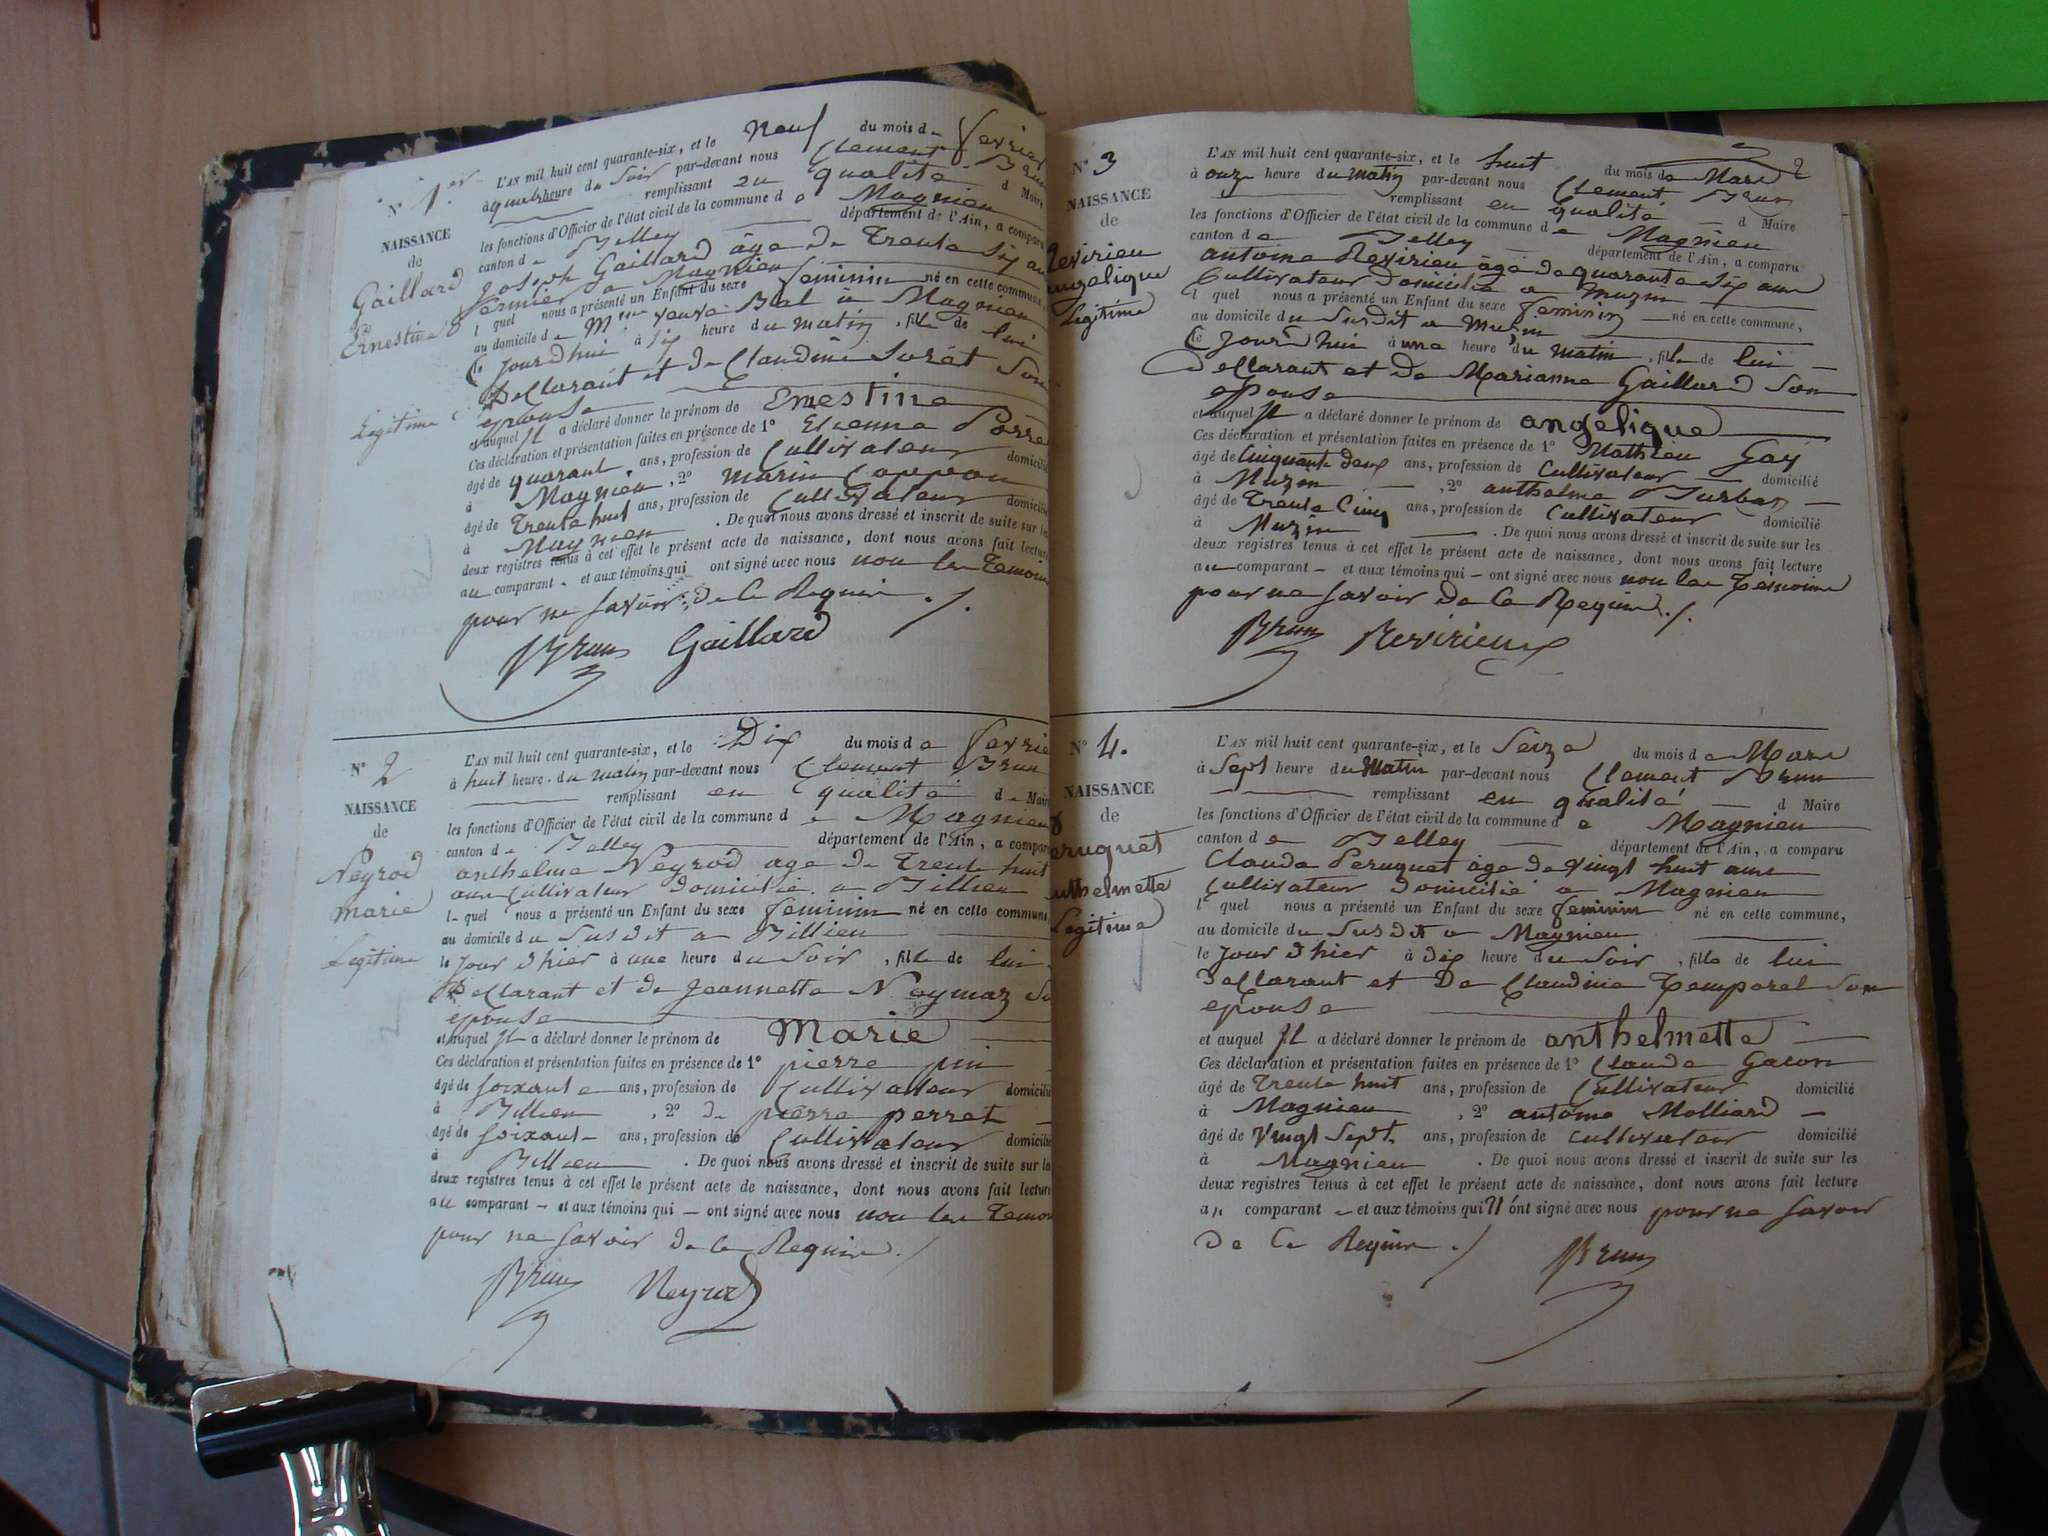 N° 1.er
NAISSANCE
de
Gaillard
Ernestine
Legitime
L'AN mil huit cent quarante-six, et le neuf du mois de fevrier
à quatre heure du Soir par-devant nous Clement Brun
remplissant en qualité d Maire
les fonctions d'Officier de l'état civil de la commune de Magnieu
canton de Belley département de l'Ain, a comparu
Joseph Gaillard âge de Trente Six an
fermier a Magnieu
l quel nous a présenté un Enfant du sexe feminin né en cette commune,
au domicile de veuve Bal a Magnieu
le jourdhui à Six heure du matin, fille de lui
Declarant et de Claudine Son
epouse
et auquel Il a déclaré donner le prénom de Ernestine
Ces déclaration et présentation faites en présence de 1° Etienne
âgé de quarant ans, profession de Cultivateur domicilié
à Magnieu, 2° marin
âgé de Trente huit ans, profession de Cultivateur domicilié
à Magnieu. De quoi nous avons dressé et inscrit de suite sur les
deux registres tenus à cet effet le présent acte de naissance, dont nous avons fait lecture
au comparant - et aux témoins qui ont signé avec nous non les Temoins
pour ne savoir de ce Requis ./.
Brun Gaillard
N° 2
NAISSANCE
de
Neyrod
marie
Legitime
L'AN mil huit cent quarante-six, et le Dix du mois de fevrie
à huit heure du matin par-devant nous Clement Brun
remplissant en qualité de Maire
les fonctions d'Officier de l'état civil de la commune de Magnieu
canton de Belley département de l'Ain, a comparu
anthelme Neyrod age de Trente huit
ans Cultivateur Domicilié a Billieu
le quel nous a présenté un Enfant du sexe feminin né en cette commune,
au domicile du Susdit a Billieu
le jour d'hier à une heure du Soir, fille de lui
Declarant et de Jeannette Neymoz So
epouse
et auquel Il a déclaré donner le prénom de Marie
Ces déclaration et présentation faites en présence de 1° pierre
âgé de soixante ans, profession de Cultivateur domicilié
à Billieu, 2° de pierre perret
âgé de soixant- ans, profession de Cultivateur domicilié
à Billieu. De quoi nous avons dressé et inscrit de suite sur les
deux registres tenus à cet effet le présent acte de naissance, dont nous avons fait lecture
au comparant - et aux témoins qui - ont signé avec nous non les Temoi
pour ne savoir de ce Requis ./
Brun Neyrod
N° 3
NAISSANCE
de
Revirieu
angelique
Legitime
L'AN mil huit cent quarante-six, et le huit du mois de Mars
à onze heure du Matin par-devant nous Clement Brun
remplissant en qualité d Maire
les fonctions d'Officier de l'état civil de la commune de Magnieu
canton de Belley département de l'Ain, a comparu
antoine Revirieu âgé de quarante Six ans
Cultivateur Domicilié a Muzin
l quel nous a présenté un Enfant du sexe feminin né en cette commune,
au domicile du Susdit a Muzin
le Jourd'hui à une heure du matin, fille de lui
Declarant et de Marianne Gaillard Son
epouse
et auquel Il a déclaré donner le prénom de angelique
Ces déclaration et présentation faites en présence de 1° Mathieu Gay
âgé de Cinquante deux ans, profession de Cultivateur domicilié
à Muzin, 2° anthelme
âgé de Trente Cinq ans, profession de Cultivateur domicilié
à Muzin. De quoi nous avons dressé et inscrit de suite sur les
deux registres tenus à cet effet le présent acte de naissance, dont nous avons fait lecture
au comparant - et aux témoins qui - ont signé avec nous non les Temoins
pour ne savoir de ce Requis ./.
Brun Revirieux
N° 4.
NAISSANCE
de
Peruquet
anthelmette
Legitime
L'AN mil huit cent quarante-six, et le Seize du mois de Mars
à Sept heure du Matin par-devant nous Clement Brun
remplissant en qualité d Maire
les fonctions d'Officier de l'état civil de la commune de Magnieu
canton de Belley département de l'Ain, a comparu
Claude Peruquet âge de vingt huit ans
Cultivateur Domicilié a Magnieu
l quel nous a présenté un Enfant du sexe feminin né en cette commune,
au domicile du Susdit a Magnieu
le jour d'hier à dix heure du Soir, fille de lui
Declarant et De Claudine Temporel Son
epouse
et auquel Il a déclaré donner le prénom de anthelmette
Ces déclaration et présentation faites en présence de 1° Claude Gacon
âgé de Trente huit ans, profession de Cultivateur domicilié
à Magnieu, 2° antoine Molliard
âgé de vingt Sept ans, profession de Cultivateur domicilié
à Magnieu. De quoi nous avons dressé et inscrit de suite sur les
deux registres tenus à cet effet le présent acte de naissance, dont nous avons fait lecture
au comparant - et aux témoins qui n'ont signé avec nous pour ne savoir
de ce Requis ./
Brun